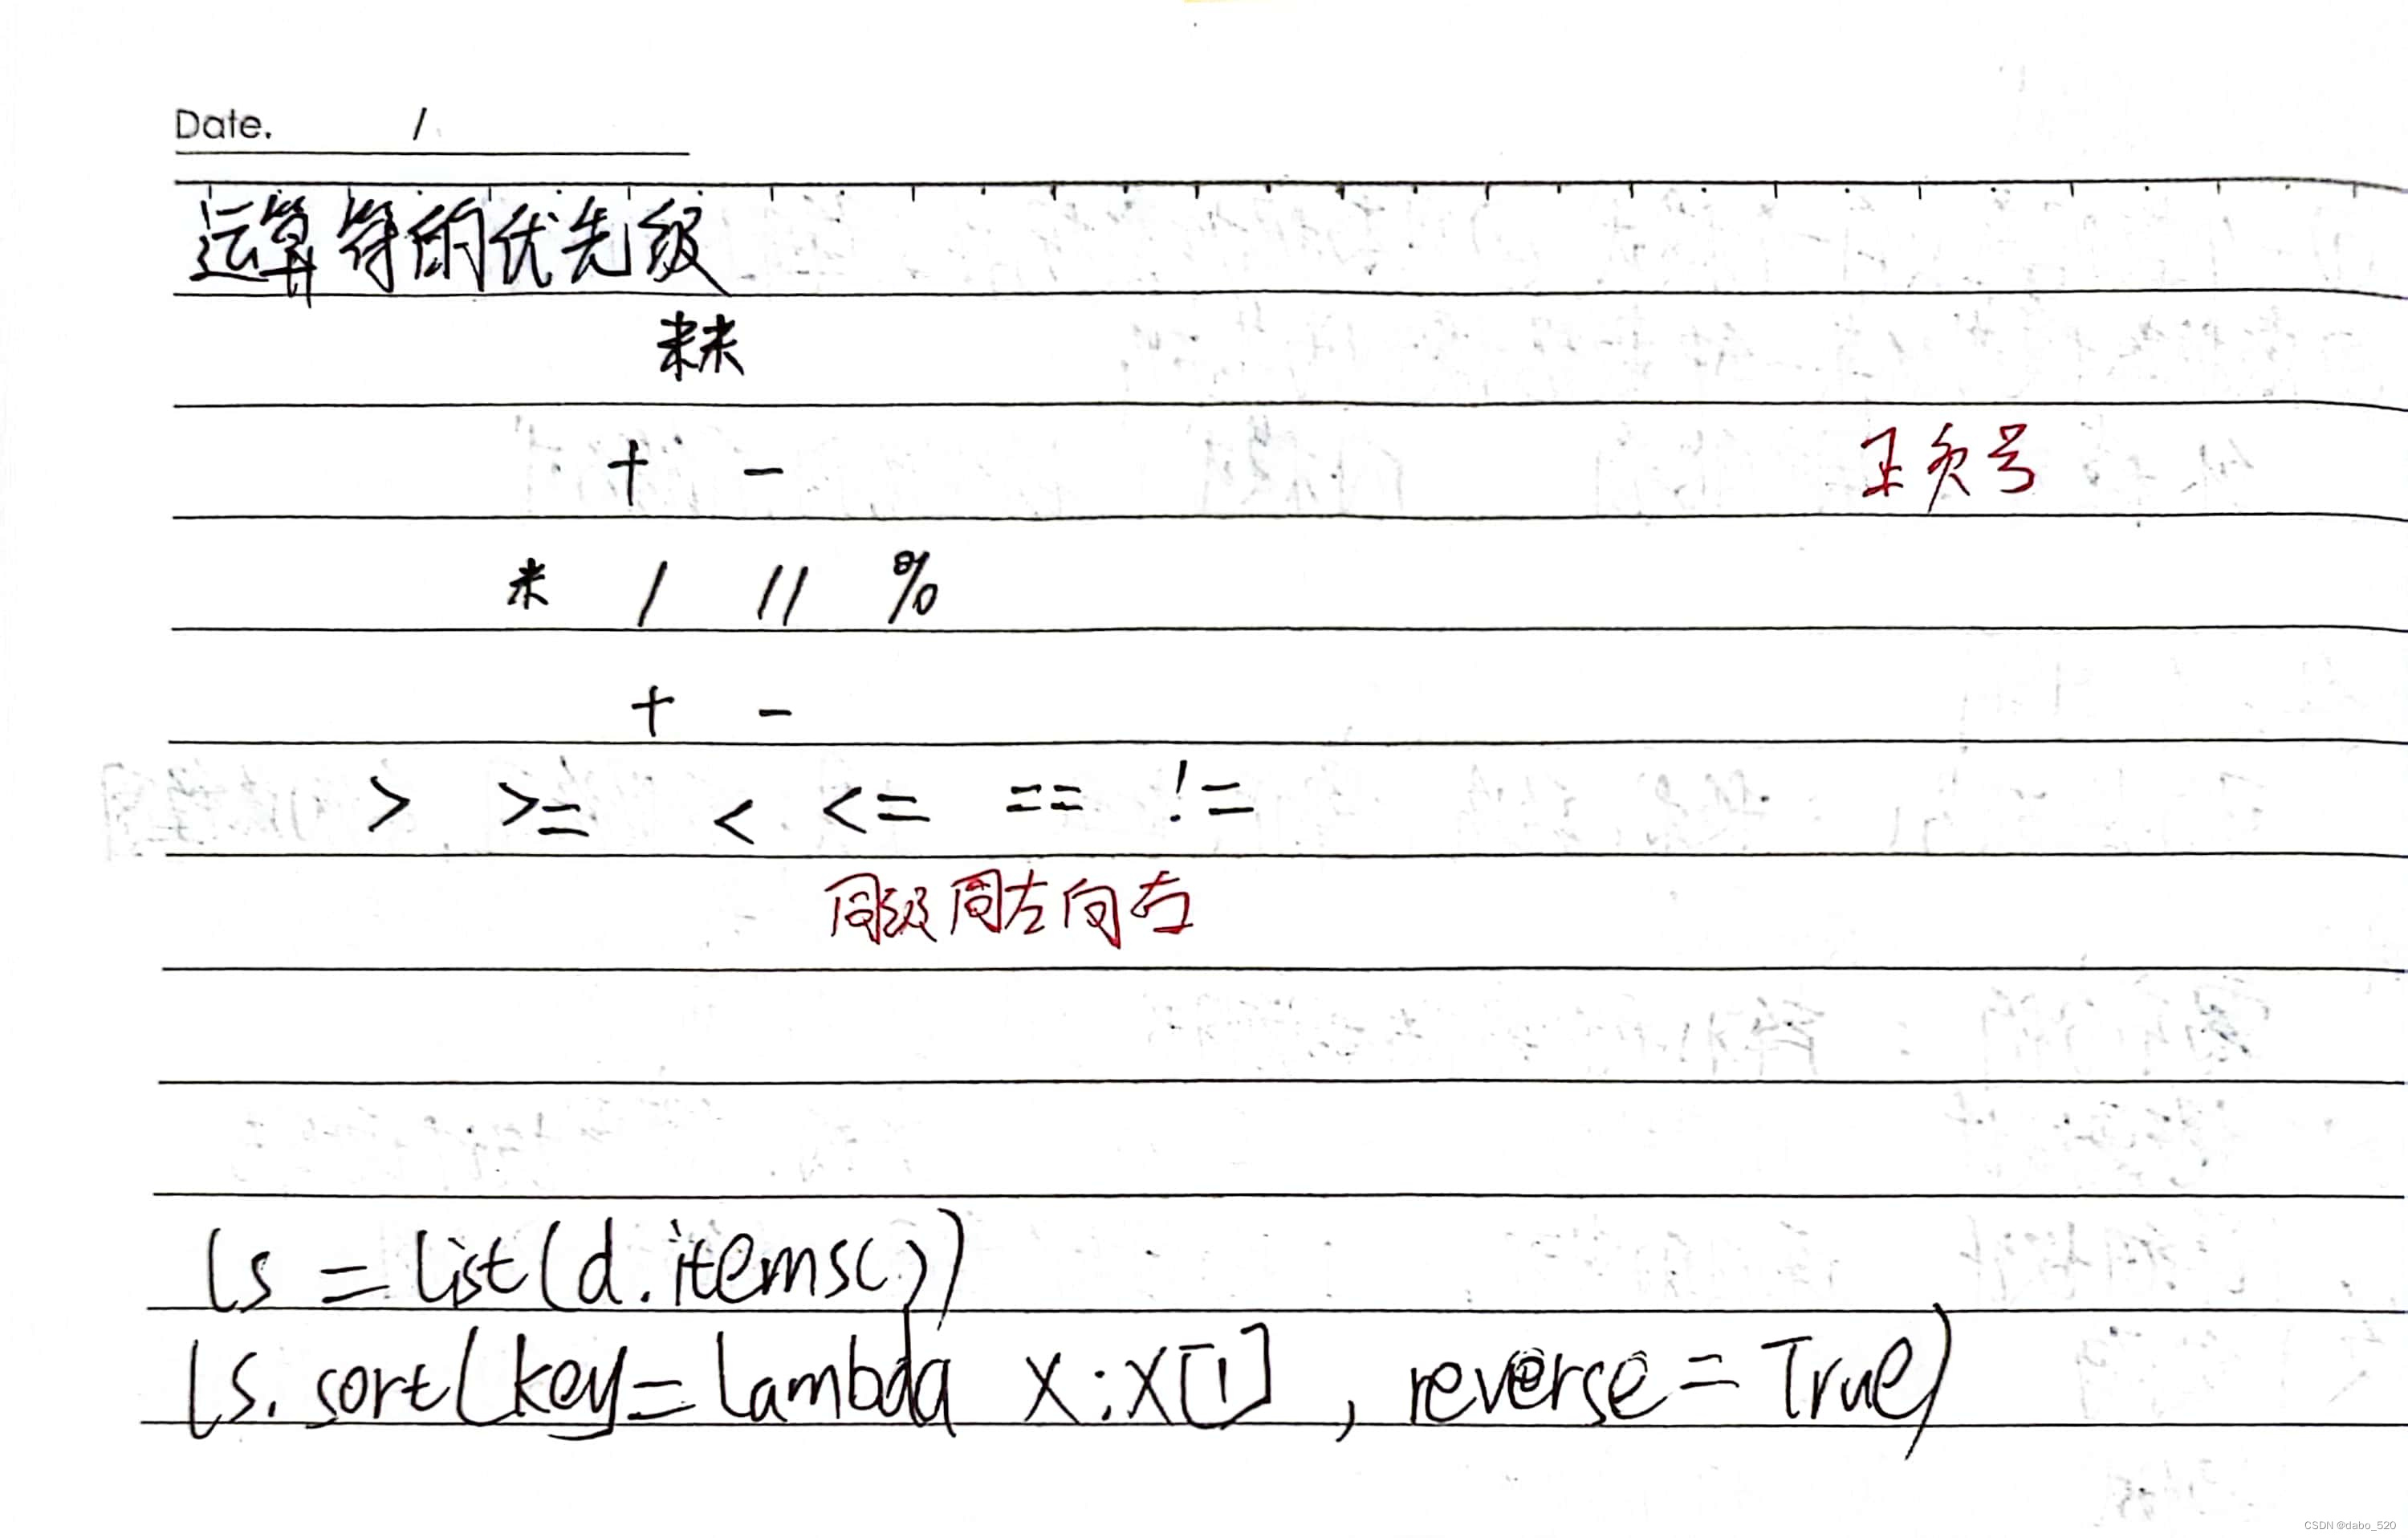 Date. /
运算符的优先级
**
+ - 正负号
* / // %
+ -
> >= < <= == != 
同级周左向右
ls = list(d.items())
ls.sort(key=lambda x:x[1] , reverse = True)
CSDN @dabo_520